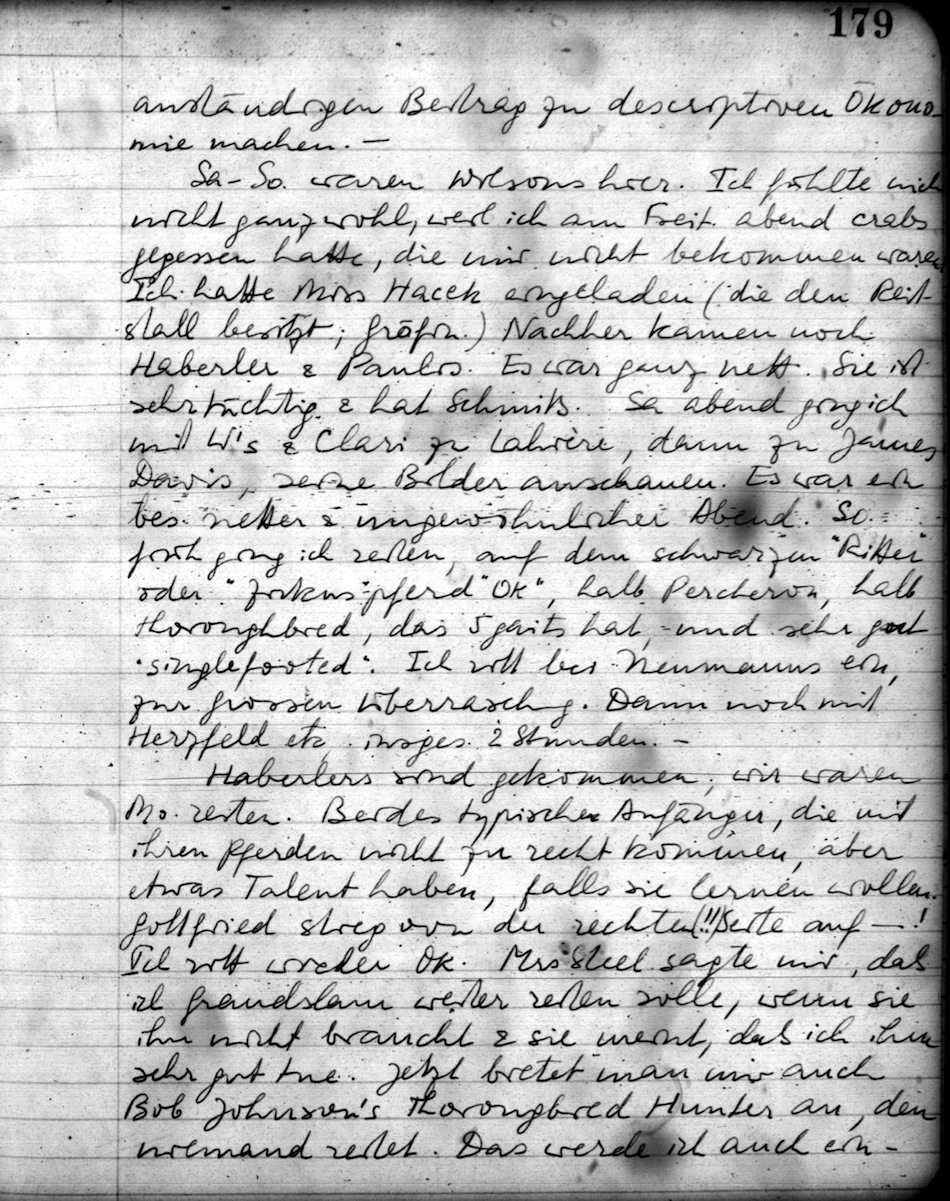 179
anständigen Beitrag zu descriptiven Ökono-
mie machen. —
Sa-So. waren Wilsons hier. Ich fühlte mich
nicht ganz wohl, weil ich am Freit. abend crabs
gegessen hatte, die mir nicht bekommen waren
Ich hatte Miss Hacek eingeladen (die den Reit-
stall besitzt; Gräfin.) Nachher kamen noch
Haberler & Paulos. Es war ganz nett. Sie ist
sehr tüchtig & hat Schmiss. Sa abend ging ich
mit W's & Clari zu Lahière, dann zu James
Davis, seine Bilder anschauen. Es war ein
bes. netter & ungewöhnlicher Abend. So.
früh ging ich reiten, auf dem schwarzen "Ritter"
oder "Zirkus"pferd "OK", halb Percheron, halb
thoroughbred, das 5 gaits hat, und sehr gut
"singlefooted". Ich ritt bei Neumanns ein,
zur grossen Überraschg. Dann noch mit
Herzfeld etc. insges. 2 Stunden. —
Haberlers sind gekommen, wir waren
Mo. reiten. Beides typische Anfänger, die mit
ihren Pferden nicht zu recht kommen, aber
etwas Talent haben, falls sie lernen wollen.
Gottfried stieg von der rechten (!!) Seite auf — !
Ich ritt wieder OK. Mrs Steel sagte mir, daß
ich Grandslam weiter reiten solle, wenn sie
ihn nicht braucht & sie meint, daß ich ihm
sehr gut tue. Jetzt bietet man mir auch
Bob Johnson's Thorougbred Hunter an, den
niemand reitet. Das werde ich auch ein-